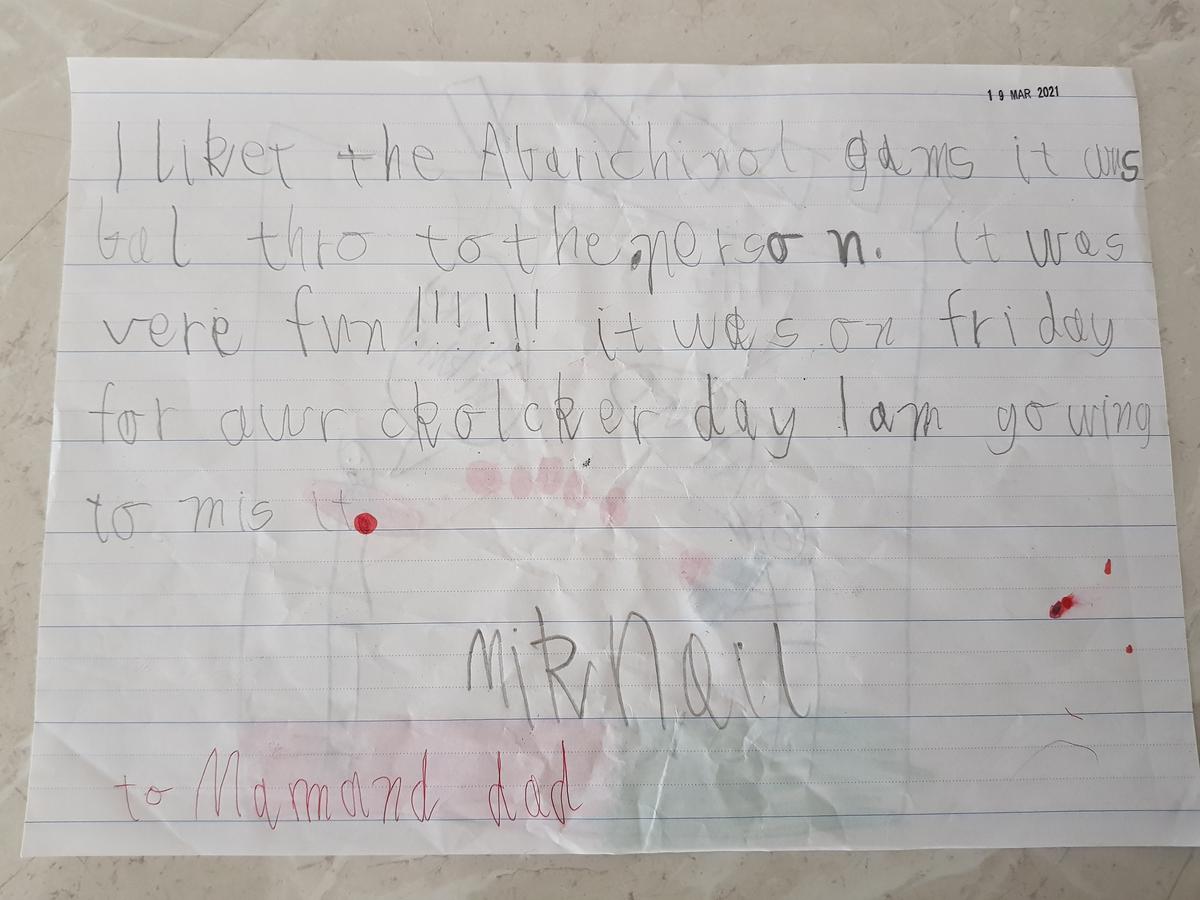 19 MAR 2021
I liket the Abarichinol gams it was
bal thro to the person. it was
vere fun !!!!!! it was on friday
for awr ckolcker day I am gowing
to mis it.
mikhail
to Mam and dad